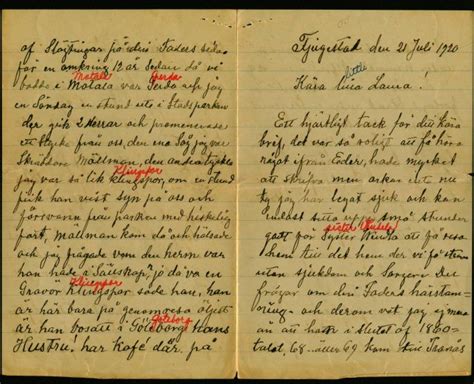 Fjugestad den 21 Juli 1920
little
Kära lilla Laura!
Ett hjärtligt tack för ditt kära
bref, det var så roligt att få höra
något ifrån Eder, hade mycket
att skrifva men orkar ett nu
ty jag har legat sjuk och kan
endast sitta uppe små stunder
sister
gott för Syster att få resa
hem till det hem der vi få
utan sjukdom och Sorger. Du
frågar om din Faders härstam-
ning och derom vet jag
att han i slutet af 1860-
talet, 68 eller 69 kom till Tranås
af Slöjfingar på din Faders sida
för en omkring 12 år Sedan då vi
Motala Gerda
bodde i Motala var Gerda och jag
en Söndag en stund ute i Stadsparken
der gik 2 Herrar och promenerade
ett stycke från oss, den ena Såg jag var
Skräddare Mällman, den andra tyckte
Klingspor
jag var så lik Klingspor, om en stund
fick han vist syn på oss och
försvann från parken med hiskelig
fart, Mällman kom då och hälsade
och jag frågade vem den herrn var
han hade i Sällskap? jo då var en
Klingspor
Gravör Klingspor sade han, han
är här bara på genomresa
Göteborg
är han bosatt i Göteborg hans
Hustru har Kafé där, på